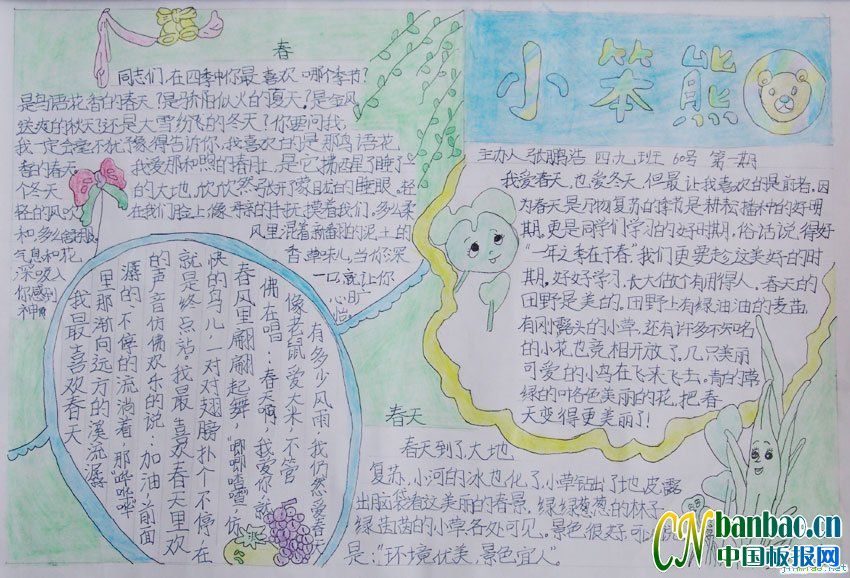 小笨熊
主办人张鹏浩 四九班 60号 第一期
春
同志们,在四季中你最喜欢哪个季节?
是鸟语花香的春天?是骄阳似火的夏天?是金风
送爽的秋天?还是大雪纷飞的冬天?你要问我,
我一定会毫不犹豫得告诉你,我喜欢的是那鸟语花
香的春天。我爱那和照的春阳,是它揣醒了睡了一
个冬天的大地,欣欣然张开了朦胧的睡眼,轻
轻的风吹在我们脸上像母亲的手抚摸着我们。多么柔
和,多么舒服,风里混着新翻的泥土的
气息和花香,草味儿,当你深
深吸入一口,就让你
你感到心旷
神怡
我最喜欢春天
里那渐向远方的溪流潺
潺的、不停的流淌着,那“哗哗哗”
的声音仿佛欢乐的说:加油,前面
就是终点站。我最喜欢春天里欢
快的鸟儿,一对对翅膀扑个不停在
春风里翩翩起舞,“唧唧喳喳”,仿
佛在唱:春天啊,我爱你,就
像老鼠爱大米不管
有多少风雨我仍然爱春天
我爱春天,也爱冬天,但最让我喜欢的是前者,因
为春天是万物复苏的季节是耕松播种的好时
期。更是同学们学习的好时期,俗话说得好
“一年之季在于春”我们更要趁这美好的时
期。好好学习,长大做个有用得人。春天的
田野是美的。田野上有绿油油的麦苗,
有刚露头的小草,还有许多不知名
的小花也竞相开放了。几只美丽
可爱的小鸟在飞来飞去。青的常
绿的叶各色美丽的花,把春
天变得更美丽了!
春天
春天到了,大地
复苏,小河的冰也化了,小草钻出了地皮,露
出脑袋看这美丽的春景,绿绿葱葱的林子
绿油油的小草,各处可见。景色很好,可说
是:“环境优美,景色宜人”。
CN banbao.cn
中国板报网
jinmiao.net